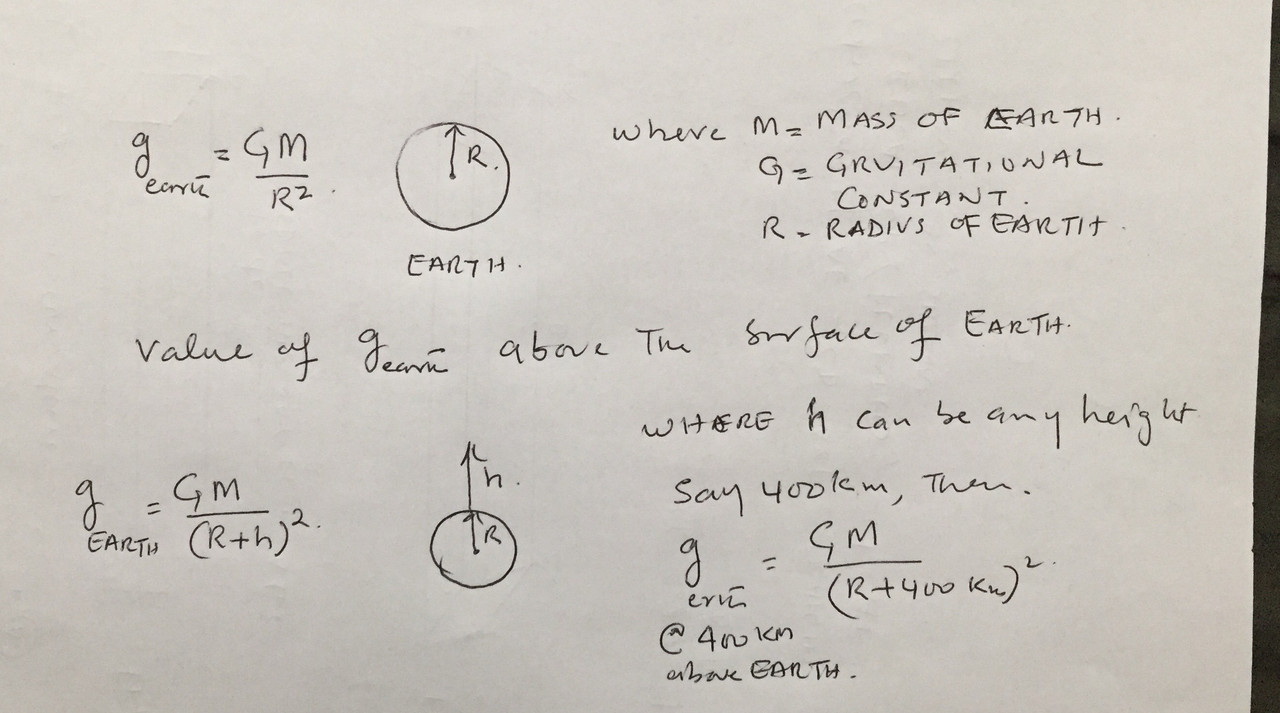 g earth = GM / R² .
R.
EARTH.
where M = MASS OF EARTH.
G = GRVITATIONAL
CONSTANT.
R = RADIUS OF EARTH.
Value of g earth above The surface of EARTH.
WHERE h can be any height
Say 400 km, Then.
g EARTH = GM / (R+h)².
h.
R
g erth = GM / (R+400 km)².
@ 400 km
above EARTH.